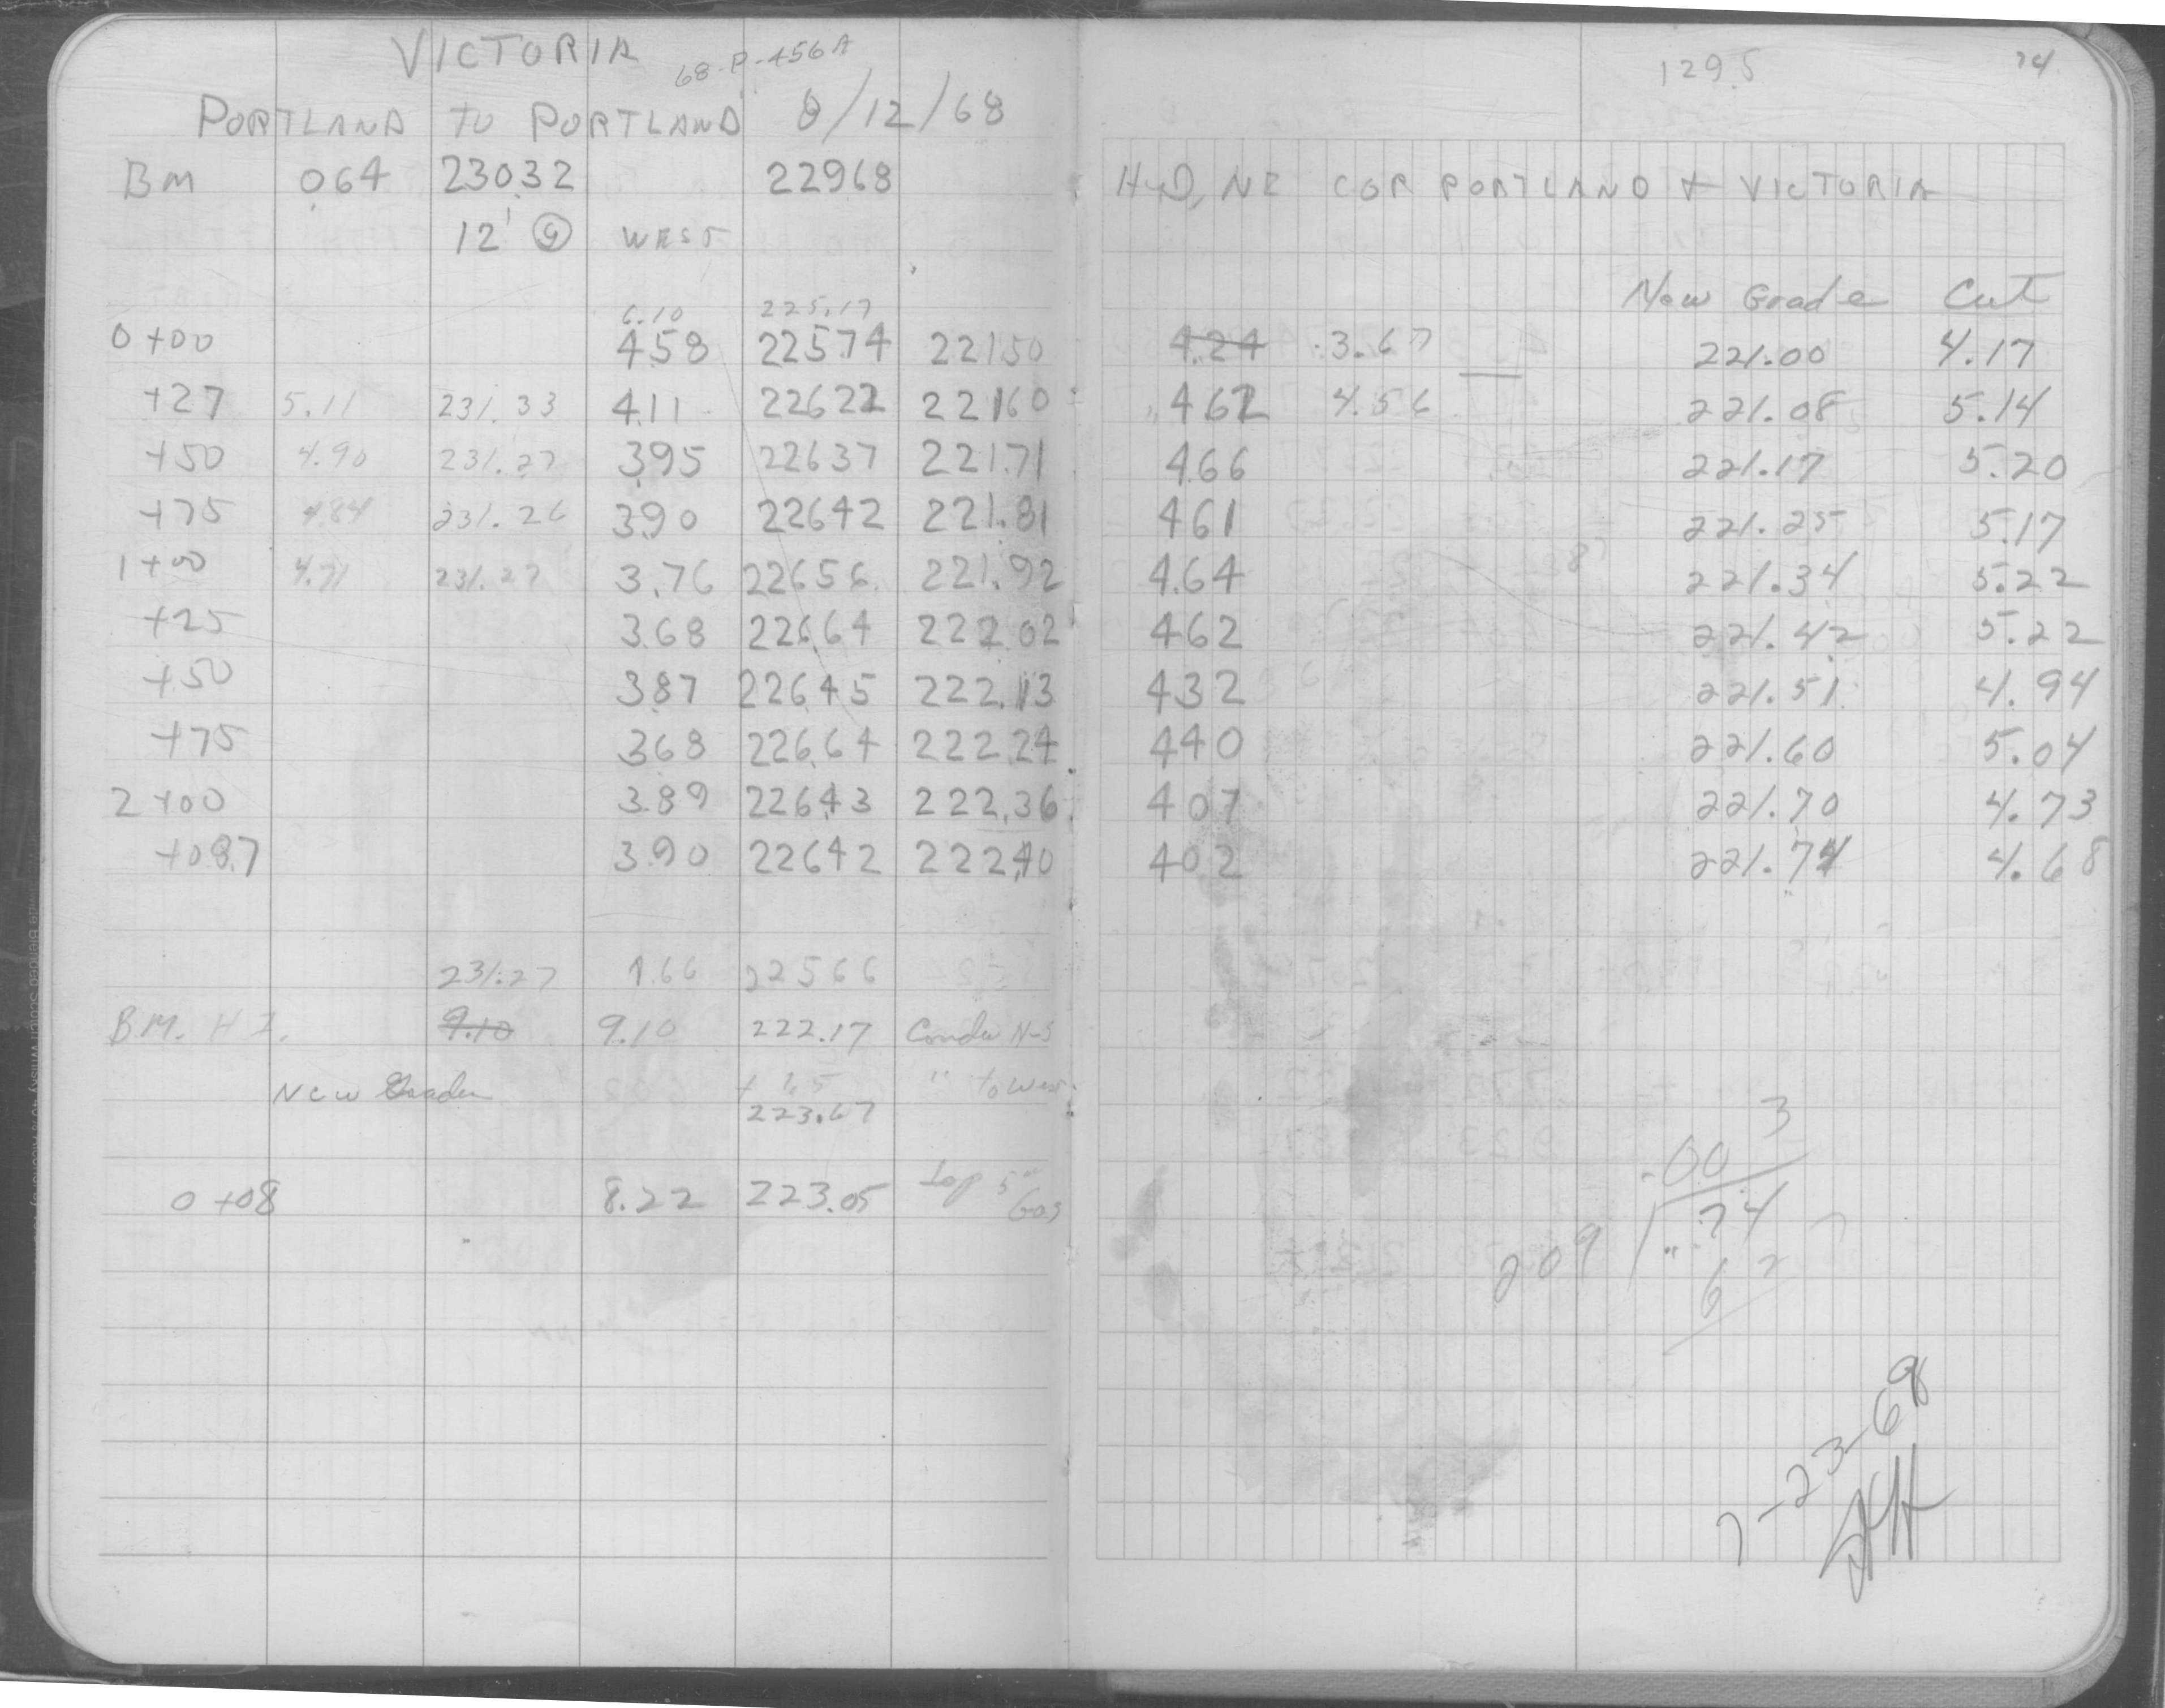 VICTORIA 68-P-456A
PORTLAND TO PORTLAND 8/12/68
BM 0.64 230.32 229.68
12' WEST
6.10 225.17
0+00 4.58 225.74 221.50
+27 5.11 231.33 4.11 226.22 221.60
+50 4.90 231.27 3.95 226.37 221.71
+75 4.84 231.26 3.90 226.42 221.81
1+00 4.71 231.27 3.76 226.56 221.92
+25 3.68 226.64 222.02
+50 3.87 226.45 222.13
+75 3.68 226.64 222.24
2+00 3.89 226.43 222.36
+08.7 3.90 226.42 222.40
231.27 1.66 225 66
B.M. H I. 9.10 9.10 222.17 Condu N-S
New Grades + 1.5 " to West
223.67
0+08 8.22 223.05 top 5" Gas
1295 74
HYD, NE COR PORTLAND + VICTORIA
New Grade Cut
4.24 3.67 221.00 4.17
4.62 4.56 221.08 5.14
4.66 221.17 5.20
4.61 221.25 5.17
4.64 221.34 5.22
4.62 221.42 5.22
4.32 221.51 4.94
4.40 221.60 5.04
4.07 221.70 4.73
4.02 221.74 4.68
.00 3
209 .74
62 7
7-23-68